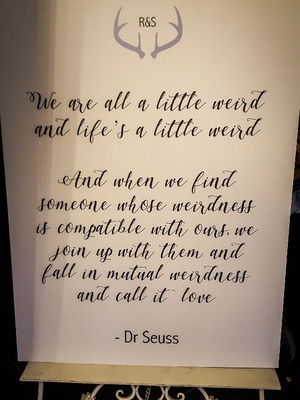 R&S
We are all a little weird
and life's a little weird
And when we find
someone whose weirdness
is compatible with ours, we
join up with them and
fall in mutual weirdness
and call it love
- Dr Seuss